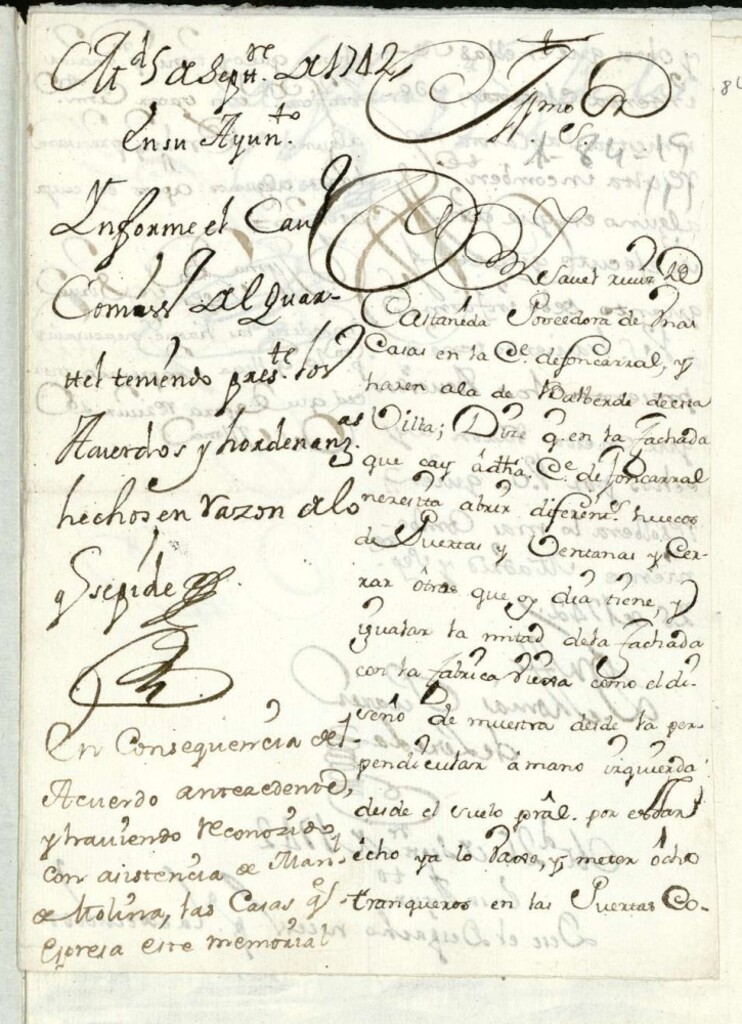 Md. 5 de Septre. de 1742
En su Ayunto.
Ynforme el Cavo.
Comisso. del Quar-
ttel teniendo preste. los
Acuerdos y hordenanzas
hechos en razon de lo
q. se pide
En Consequencia del
Acuerdo antecedente,
y haviendo reconozido
con asistencia de Manl.
de Molina, las Casas q.
espresa este memorial
Yllmo. Sr.
S.
Ysavel
Castañeda Poseedora de unas
Casas en la Ce. de foncarral, y
hazen a la de Balberde de esta
Villa; Dize q. en la fachada
que cay a dha Ce. de foncarral
nezesita abrir diferents. huecos
de Puertas y Ventanas y Cer-
rar otros que oy dia tiene, y
ygualar la mitad de la fachada
con la fabrica nueva como el di-
seño de muestra desde la per-
pendicular a mano izquierda
desde el suelo pral. por estar
echo ya lo vaxo, y meter ocho
tranqueros en las Puertas Co-